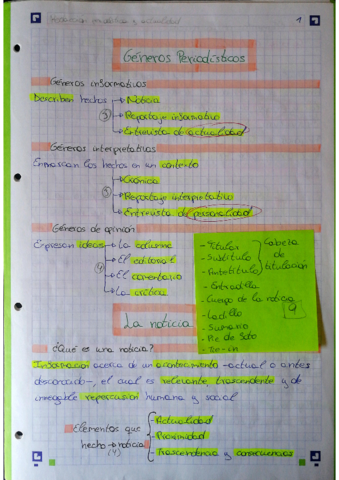 1
Géneros Periodísticos
Géneros informativos
Describen hechos → Noticia
(3) → Reportaje informativo
→ Entrevista de actualidad
Géneros interpretativos
Enmarcan los hechos en un contexto
→ Crónica
(3) → Reportaje interpretativo
→ Entrevista de personalidad
Géneros de opinión
Expresan ideas → La columna
→ El editorial
(4) → El comentario
→ La crítica
- Titular
- Subtítulo
- Antetítulo
Cabeza de titulación
- Entradilla
- Cuerpo de la noticia
- Ladillo
- Sumario
- Pie de foto
9
La noticia
¿Qué es una noticia?
Información acerca de un acontecimiento -actual o antes
desconocido-, el cual es relevante, trascendente y de
innegable repercusión humana y social
Elementos que
hecho → noticia
(4)
- Actualidad
- Proximidad
- Trascendencia y consecuencias